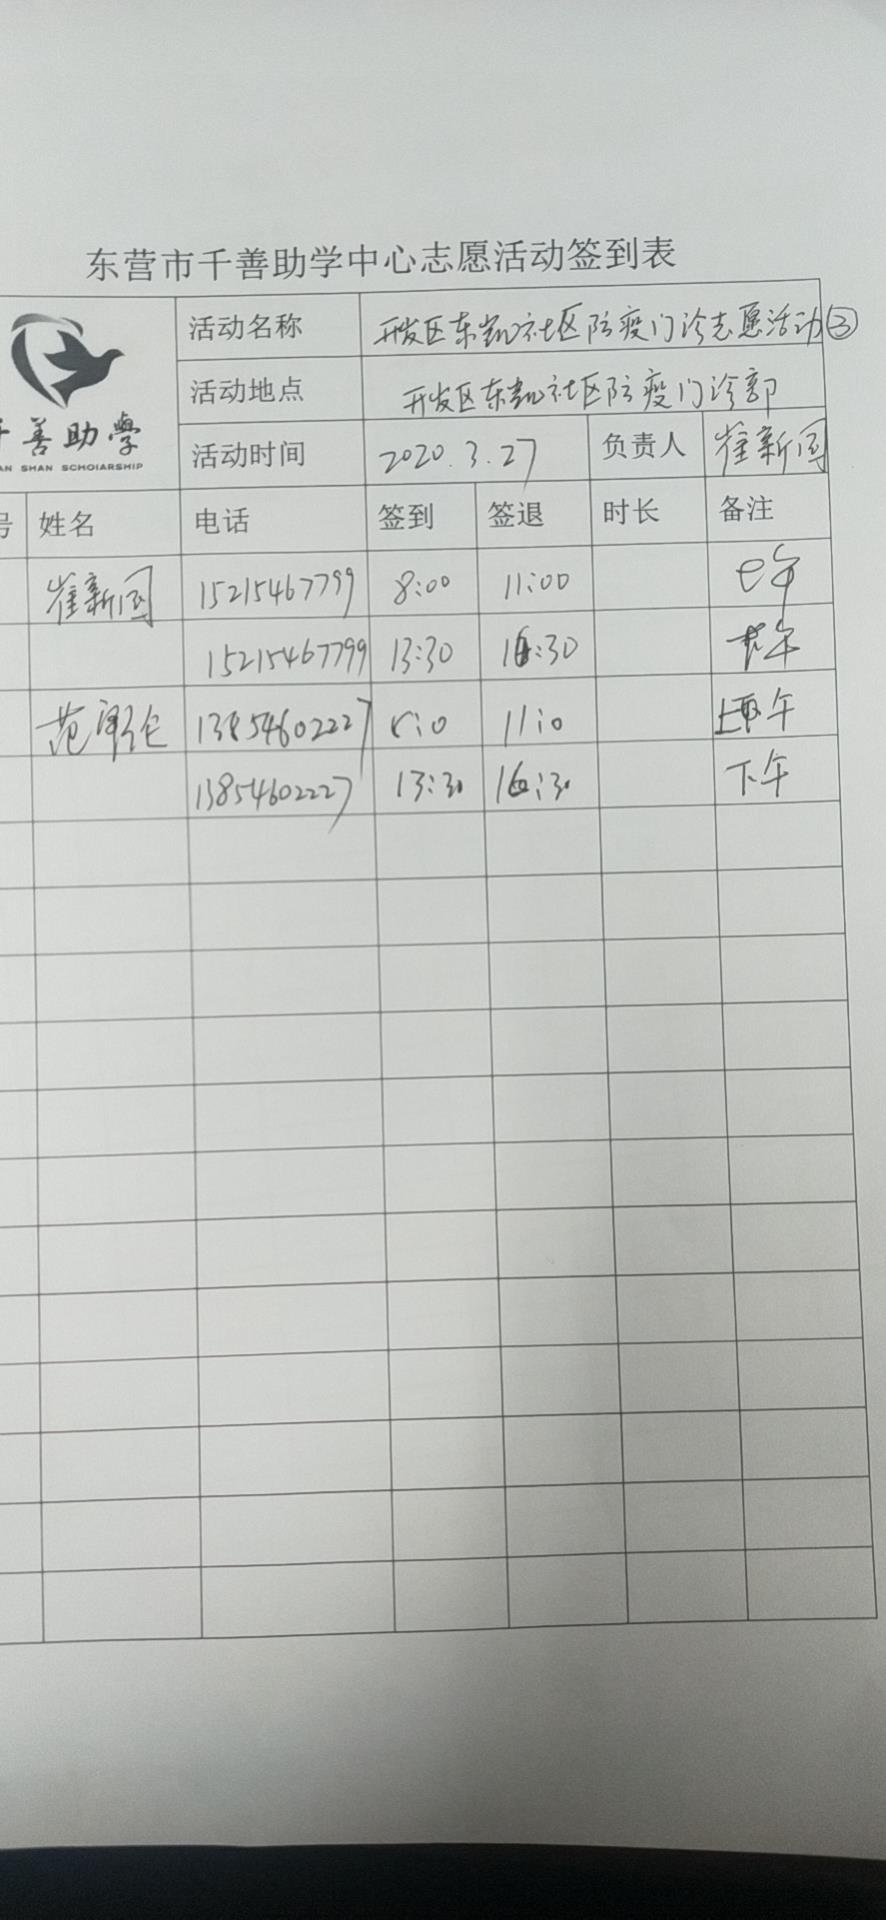 东营市千善助学中心志愿活动签到表
千善助學
AN SHAN SCHOIARSHIP
活动名称 开发区东凯社区防疫门诊志愿活动③
活动地点 开发区东凯社区防疫门诊部
活动时间 2020.3.27 负责人 崔新国
号 姓名 电话 签到 签退 时长 备注
崔新国 15215467799 8:00 11:00 上午
15215467799 13:30 16:30 下午
范 13854602227 11:0 上午
13854602227 13:30 16:30 下午